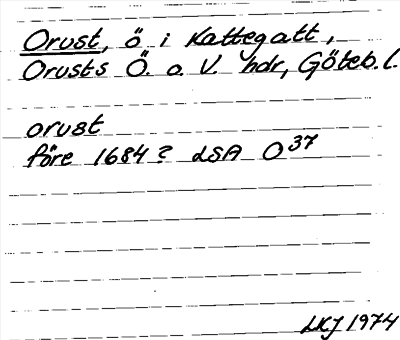 Orust, ö i Kattegatt,
Orusts Ö. o. V. hdr, Göteb. l.
orust
före 1684? LSA O37
LKJ 1974